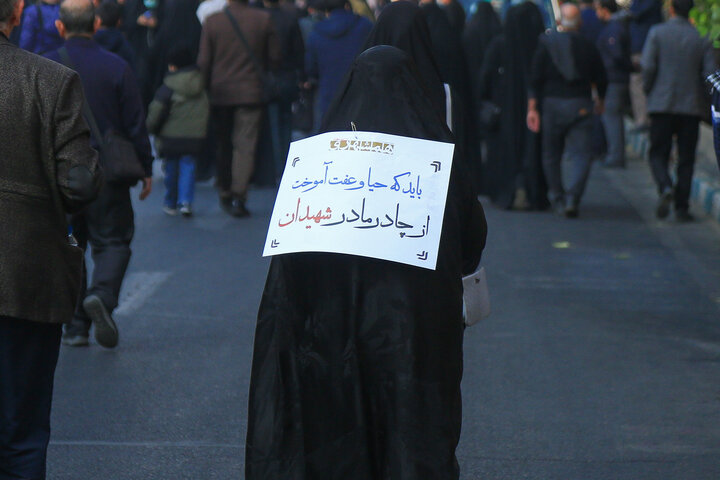 باید که حیا و عفت آموخت
از چادر مادر شهیدان